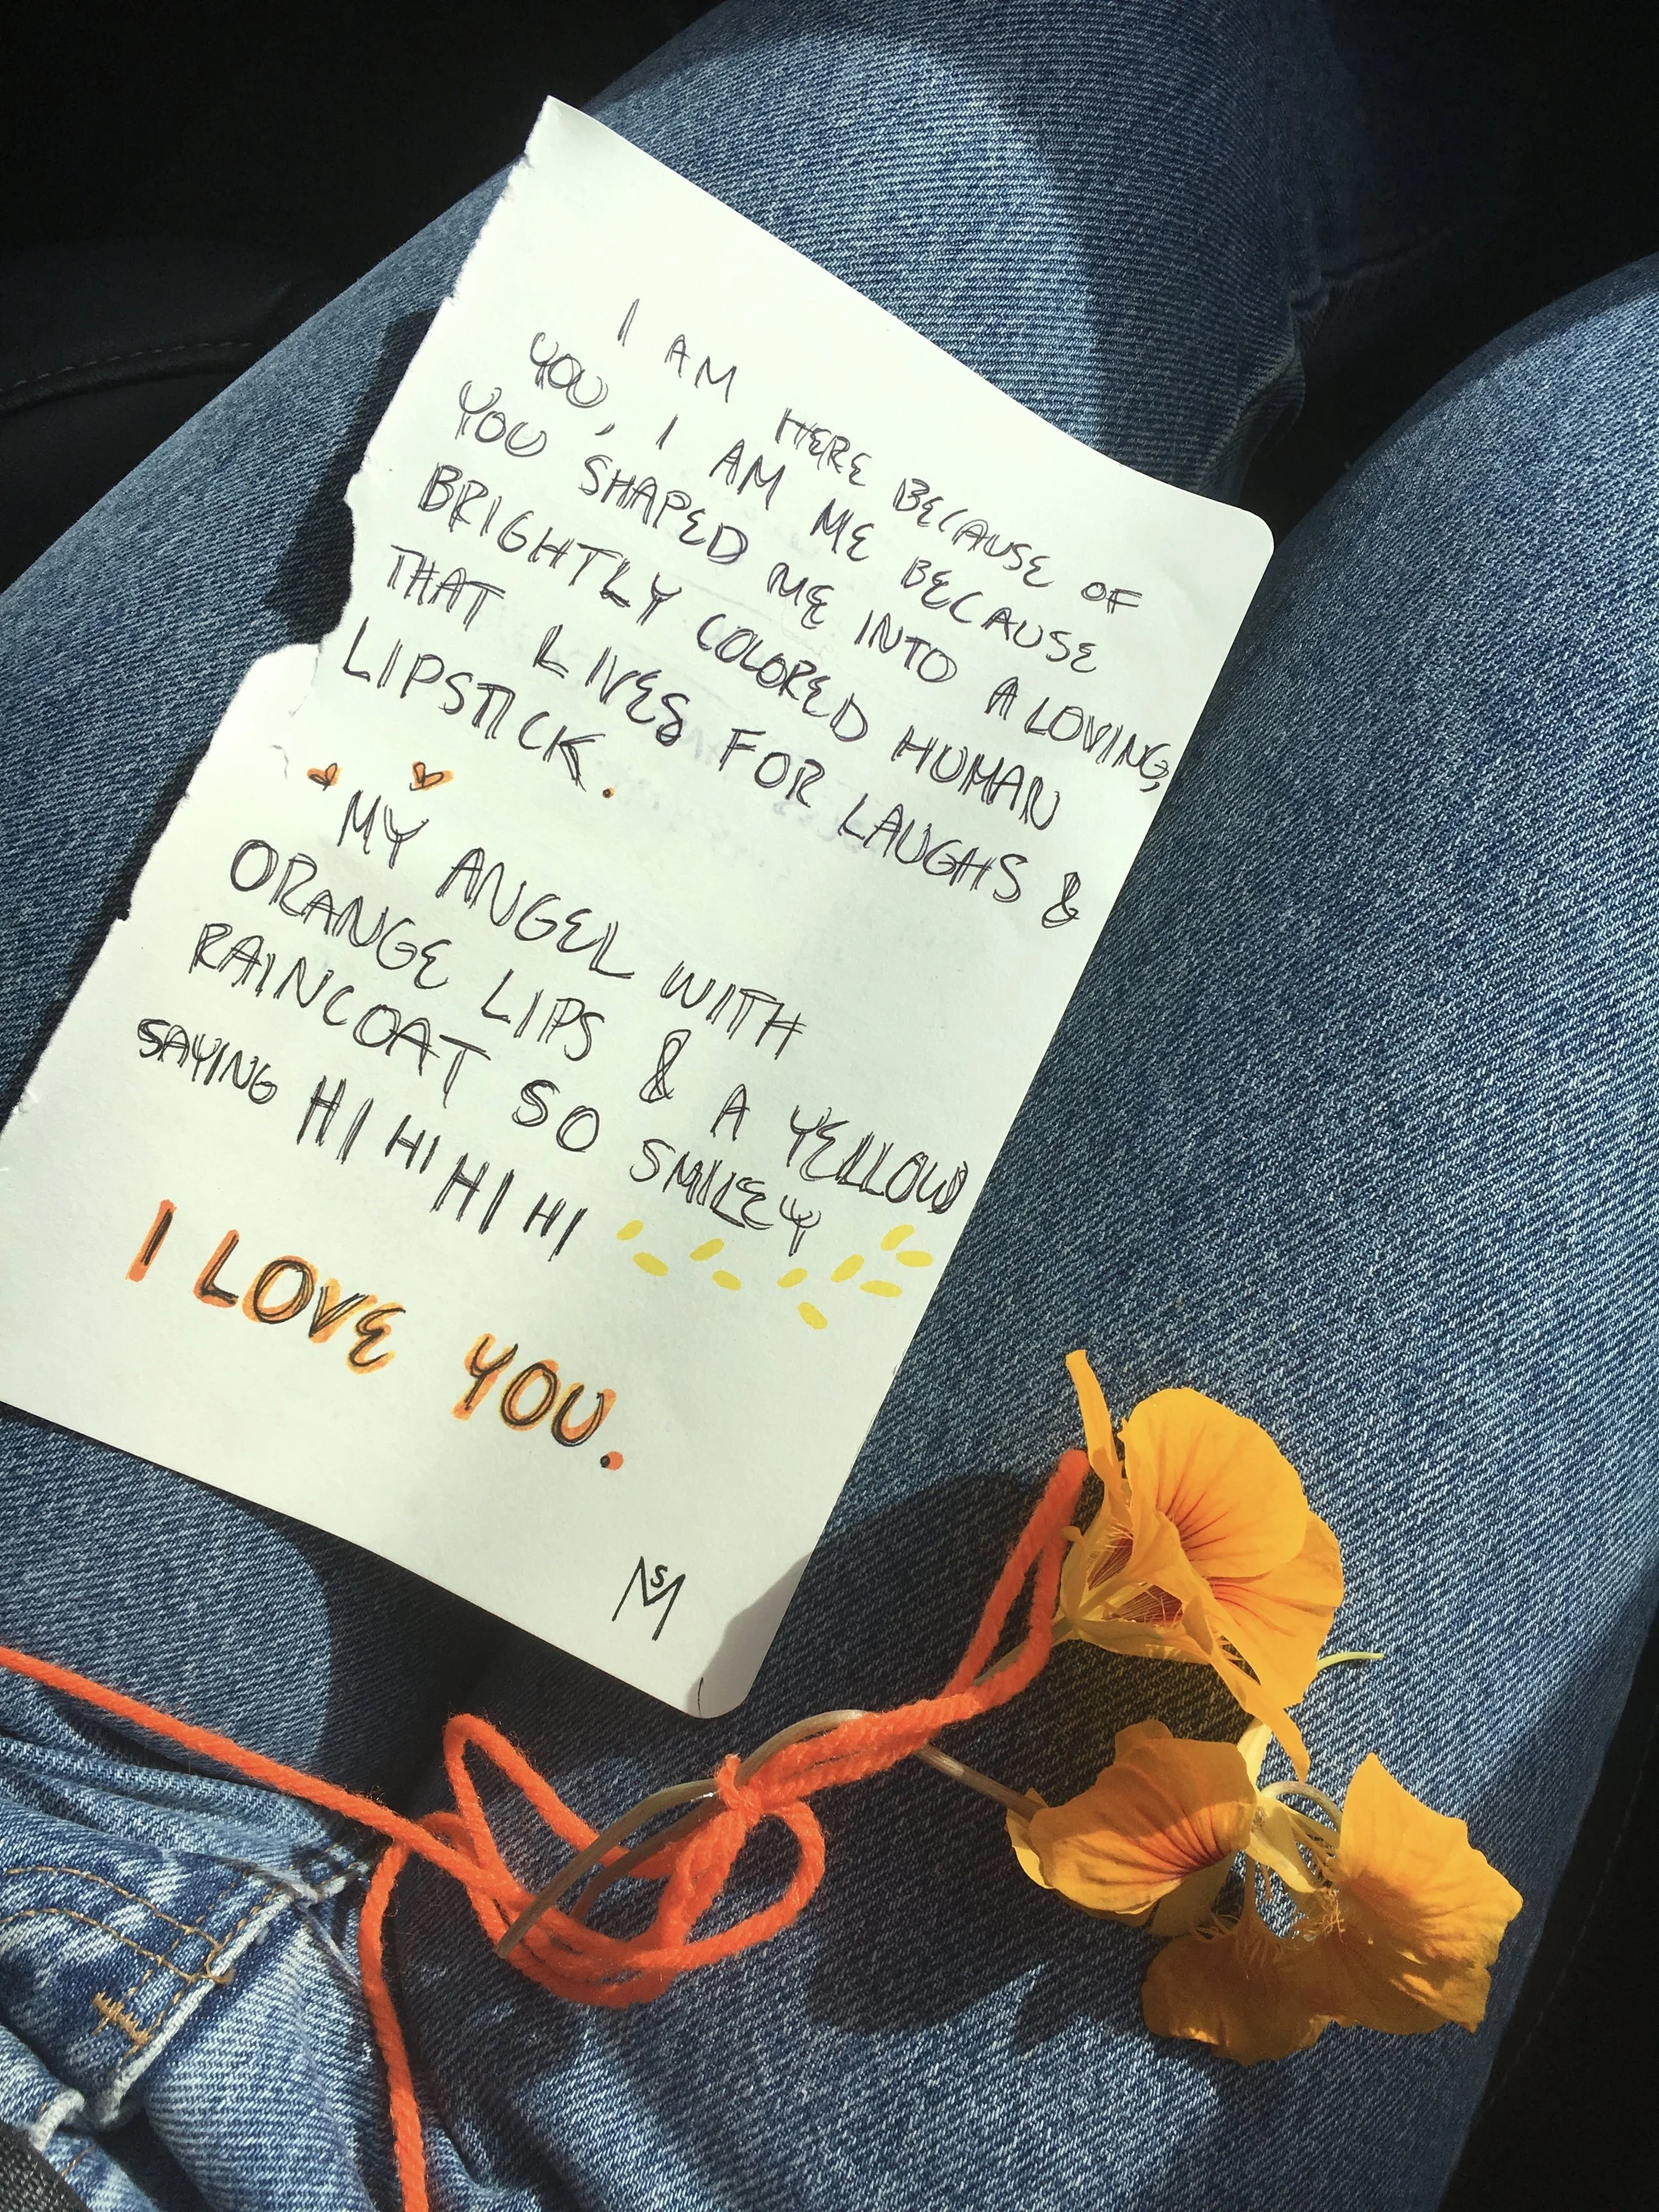 I AM HERE BECAUSE OF
YOU, I AM ME BECAUSE
YOU SHAPED ME INTO A LOVING,
BRIGHTLY COLORED HUMAN
THAT LIVES FOR LAUGHS &
LIPSTICK.
MY ANGEL WITH
ORANGE LIPS & A YELLOW
RAINCOAT SO SMILEY
SAYING HI HI HI HI
I LOVE YOU.
MS